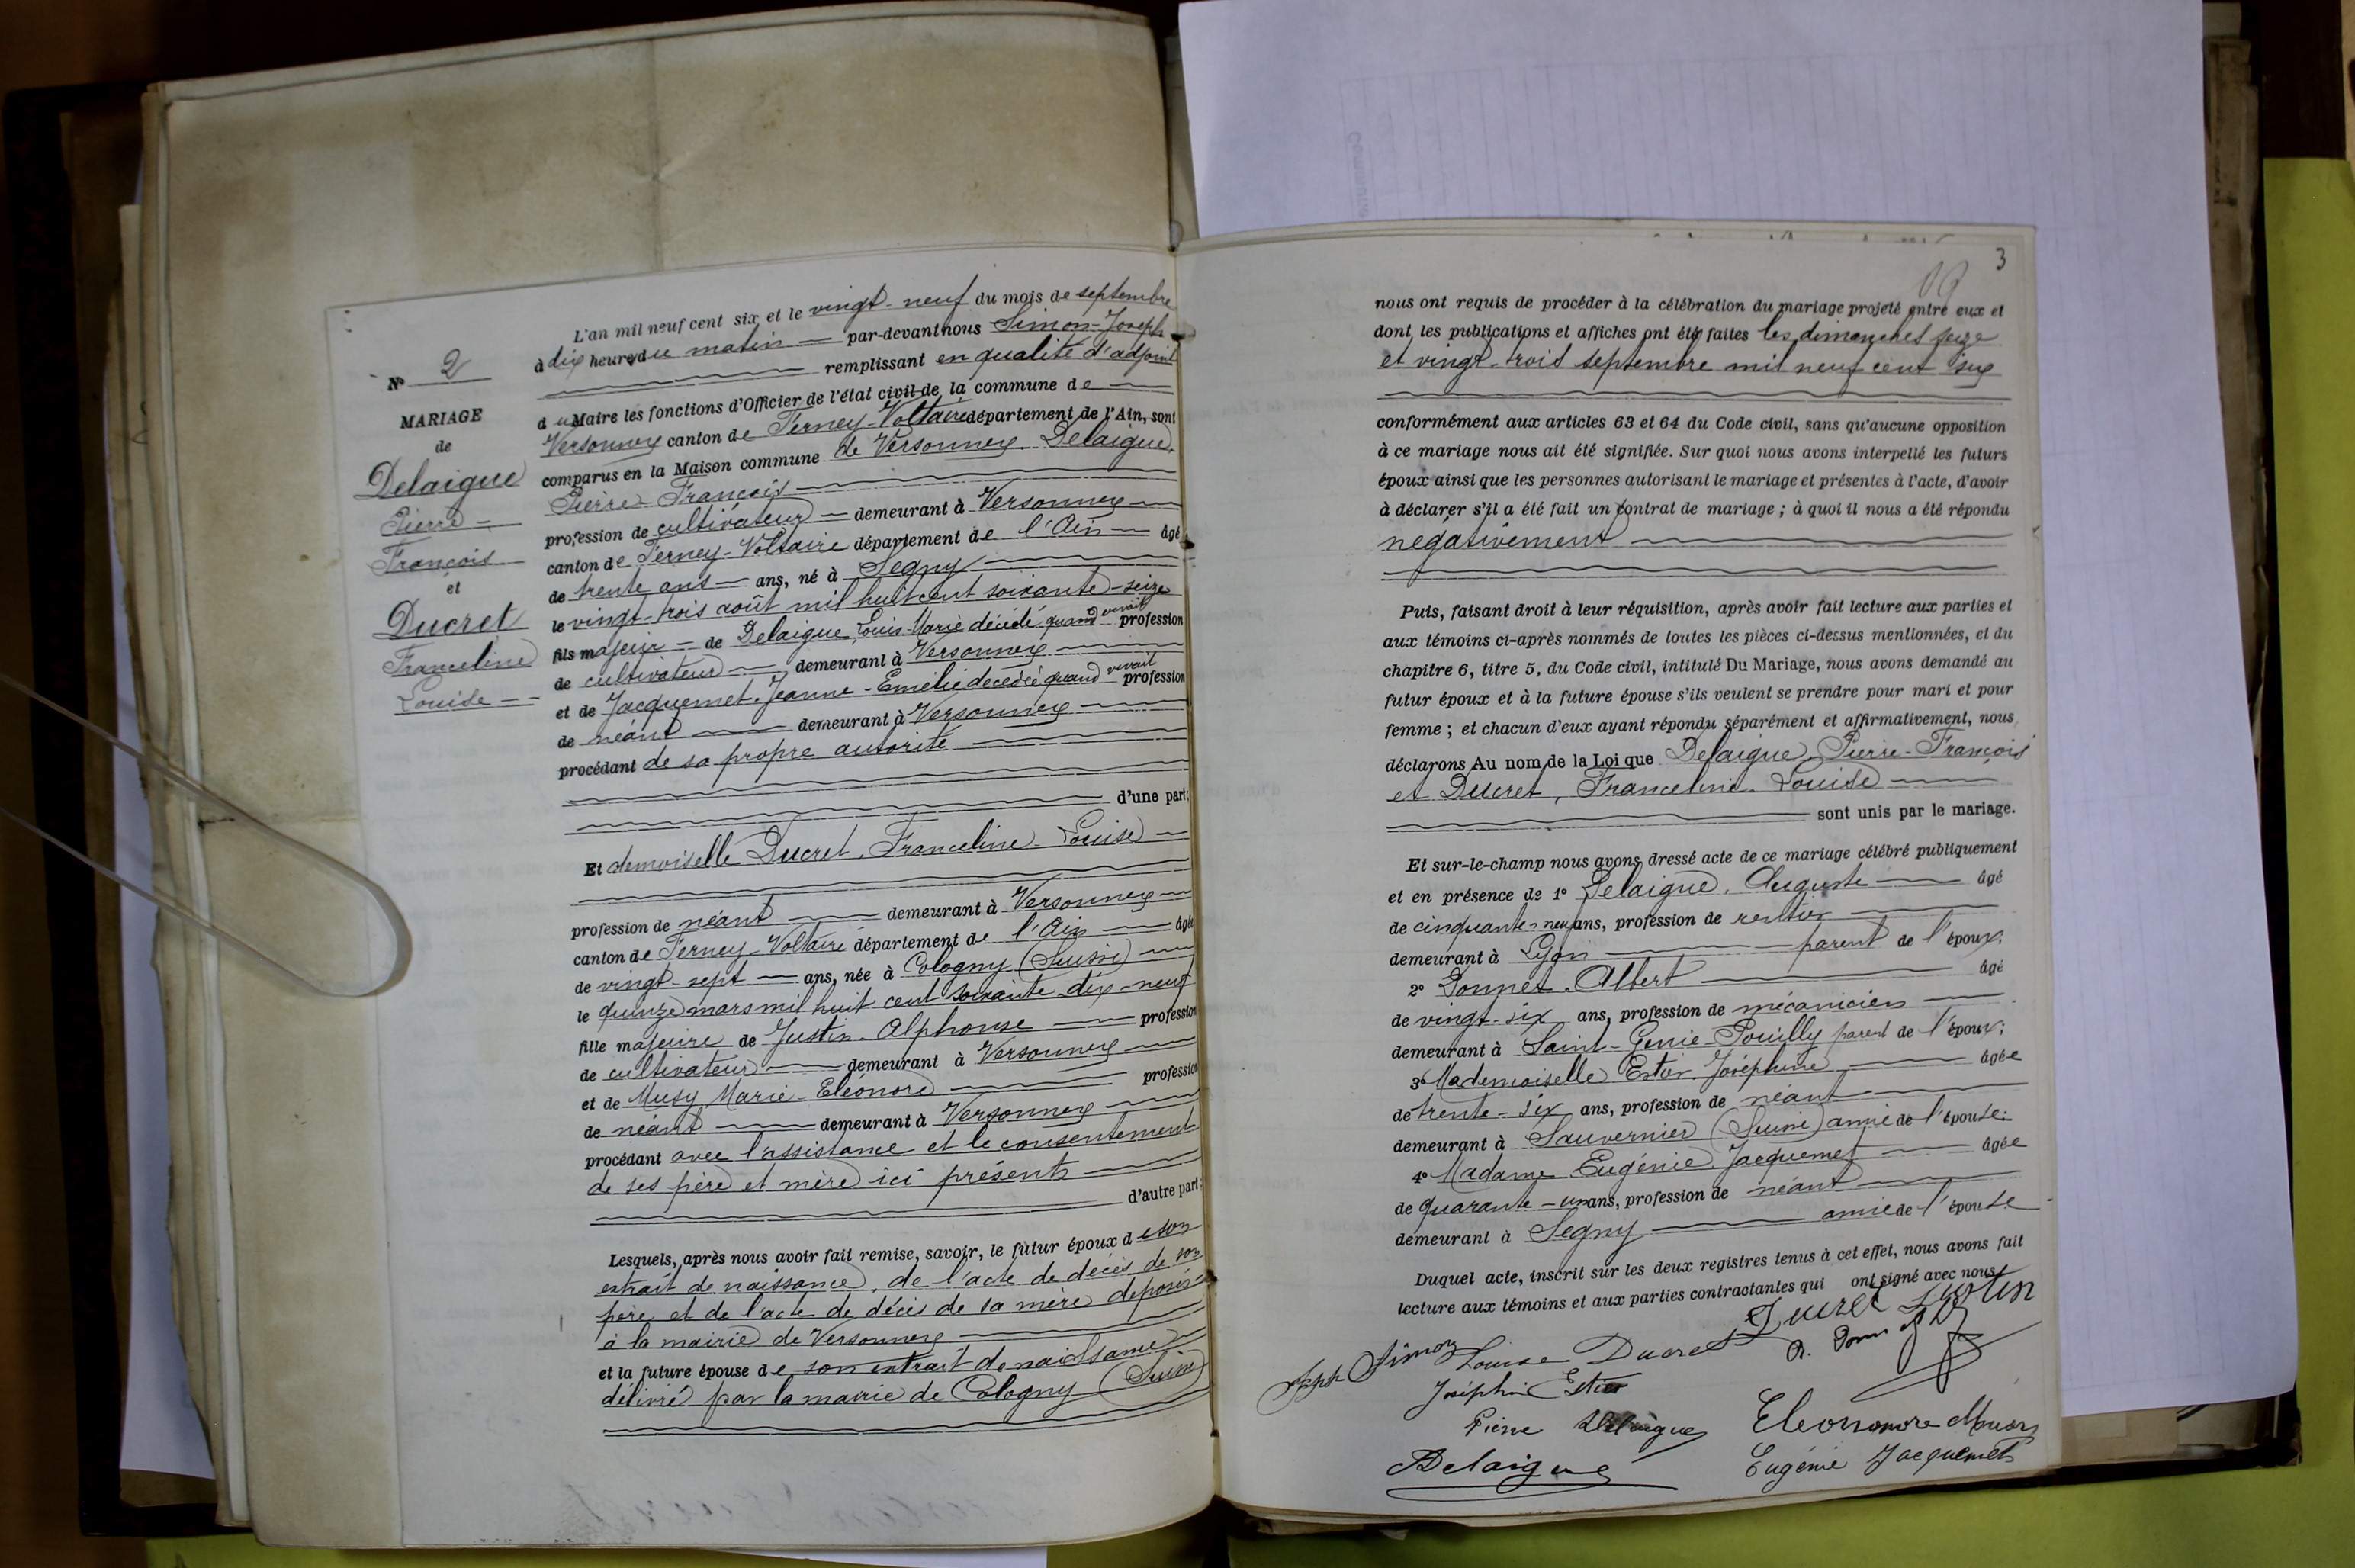 N° 2
MARIAGE
de
Delaigue
Pierre
François
et
Ducret
Franceline
Louise
L'an mil neuf cent six et le vingt-neuf du mois de septembre
à dix heures du matin par-devant nous Simon-Joseph
remplissant en qualité d'adjoint
du Maire les fonctions d'Officier de l'état civil de la commune de
Versonnex canton de Ferney-Voltaire département de l'Ain, sont
comparus en la Maison commune de Versonnex Delaigue
Pierre François
profession de cultivateur demeurant à Versonnex
canton de Ferney-Voltaire département de l'Ain âgé
de trente ans ans, né à Segny
le vingt-trois août mil huit cent soixante-seize
fils majeur de Delaigue Louis-Marie décédé quand vivait profession
de cultivateur demeurant à Versonnex
et de Jacquemet Jeanne-Emélie decédée quand vivait profession
de néant demeurant à Versonnex
procédant de sa propre autorité
d'une part;
Et demoiselle Ducret, Franceline-Louise
profession de néant demeurant à Versonnex
canton de Ferney-Voltaire département de l'Ain âgée
de vingt-sept ans, née à Cologny (Suisse)
le quinze mars mil huit cent soixante-dix-neuf
fille majeure de Justin-Alphonse profession
de cultivateur demeurant à Versonnex
et de Musy Marie-Eléonore profession
de néant demeurant à Versonnex
procédant avec l'assistance et le consentement
de ses père et mère ici présents
d'autre part;
Lesquels, après nous avoir fait remise, savoir, le futur époux de son
extrait de naissance, de l'acte de décès de son
père et de l'acte de décès de sa mère deposés
à la mairie de Versonnex
et la future épouse de son extrait de naissance
délivré par la mairie de Cologny (Suisse)
3
nous ont requis de procéder à la célébration du mariage projeté entre eux et
dont les publications et affiches ont été faites les dimanches seize
et vingt-trois septembre mil neuf cent six
conformément aux articles 63 et 64 du Code civil, sans qu'aucune opposition
à ce mariage nous ait été signifiée. Sur quoi nous avons interpellé les futurs
époux ainsi que les personnes autorisant le mariage et présentes à l'acte, d'avoir
à déclarer s'il a été fait un contrat de mariage ; à quoi il nous a été répondu
négativement
Puis, faisant droit à leur réquisition, après avoir fait lecture aux parties et
aux témoins ci-après nommés de toutes les pièces ci-dessus mentionnées, et du
chapitre 6, titre 5, du Code civil, intitulé Du Mariage, nous avons demandé au
futur époux et à la future épouse s'ils veulent se prendre pour mari et pour
femme ; et chacun d'eux ayant répondu séparément et affirmativement, nous
déclarons Au nom de la Loi que Delaigue, Pierre-François
et Ducret, Franceline-Louise
sont unis par le mariage.
Et sur-le-champ nous avons dressé acte de ce mariage célébré publiquement
et en présence de 1° Delaigue, Auguste âgé
de cinquante-neuf ans, profession de rentier
demeurant à Lyon parent de l'époux;
2° Donnet-Albert âgé
de vingt-six ans, profession de mécanicien
demeurant à Saint-Genis-Pouilly parent de l'époux;
3° Mademoiselle Estier Joséphine âgée
de trente-six ans, profession de néant
demeurant à Sauvernier (Suisse) amie de l'épouse;
4° Madame Eugénie Jacquemet âgée
de quarante-un ans, profession de néant
demeurant à Segny amie de l'épouse
Duquel acte, inscrit sur les deux registres tenus à cet effet, nous avons fait
lecture aux témoins et aux parties contractantes qui ont signé avec nous
Ducret Justin
Simon Louise Ducret
Joséphine Estier
Pierre Delaigue Eleonore
Delaigue Eugénie Jacquemet